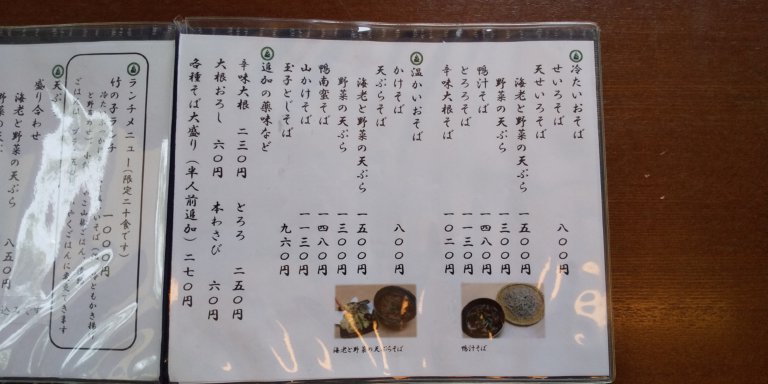 冷たいおそば
せいろそば 八〇〇円
天せいろそば
海老と野菜の天ぷら 一五〇〇円
野菜の天ぷら 一三〇〇円
鴨汁そば 一四八〇円
とろろそば 一一三〇円
辛味大根そば 一〇二〇円
温かいおそば
かけそば 八〇〇円
天ぷらそば
海老と野菜の天ぷら 一五〇〇円
野菜の天ぷら 一三〇〇円
鴨南蛮そば 一四八〇円
山かけそば 一一三〇円
玉子とじそば 九六〇円
追加の薬味など
辛味大根 二三〇円 とろろ 二五〇円
大根おろし 六〇円 本わさび 六〇円
各種そば大盛り(半人前追加) 二七〇円
鴨汁そば
海老と野菜の天ぷらそば
ランチメニュー(限定二十食です)
竹の子ランチ 一〇〇〇円
天ぷ
盛り合わせ
海老と野菜の天ぷら 八五〇円
野菜の天ぷ